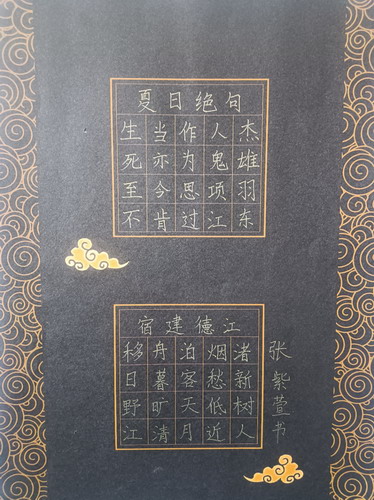 夏日绝句
生当作人杰
死亦为鬼雄
至今思项羽
不肯过江东
宿建德江
移舟泊烟渚
日暮客愁新
野旷天低树
江清月近人
张紫萱书